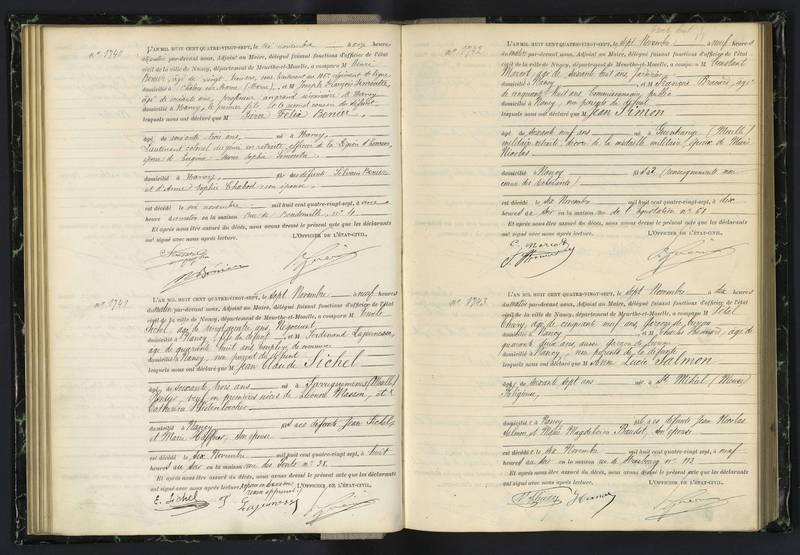 n° 1740
L'AN MIL HUIT CENT QUATRE-VINGT-SEPT, le six novembre à onze heures
du matin par-devant nous, Adjoint au Maire, délégué faisant fonctions d'officier de l'état
civil de la ville de Nancy, département de Meurthe-et-Moselle, a comparu M Henri
Bénier, âgé de vingt ans, sous lieutenant au 106e régiment de ligne
domicilié à Châlons sur Marne (Marne), et M Joseph François
âgé de soixante ans, professeur au grand séminaire de Nancy
domicilié à Nancy, le premier fils et le second cousin du défunt
lesquels nous ont déclaré que M Félix Bénier
âgé de soixante trois ans, né à Nancy,
Lieutenant colonel du génie en retraite, officier de la Légion d'honneur,
époux de Eugénie Marie Sophie
domicilié à Nancy, fils des défunts Sylvain Bénier
et d'Anne Sophie Chabod son épouse
est décédé le six novembre mil huit cent quatre-vingt-sept, à une
heure du matin en la maison Rue de n° 4
Et après nous être assuré du décès, nous avons dressé le présent acte que les déclarants
ont signé avec nous après lecture. L'OFFICIER DE L'ÉTAT-CIVIL,
H Bénier
n° 1741
L'AN MIL HUIT CENT QUATRE-VINGT-SEPT, le sept Novembre à neuf heures
du matin par-devant nous, Adjoint au Maire, délégué faisant fonctions d'officier de l'état
civil de la ville de Nancy, département de Meurthe-et-Moselle, a comparu M Emile
Sichel, âgé de vingt quatre ans, Négociant
domicilié à Nancy, fils du défunt et M Ferdinand Lajeunesse,
âgé de quarante huit ans, employé de commerce
domicilié à Nancy, non parent du défunt
lesquels nous ont déclaré que M Jean Claude Sichel
âgé de soixante trois ans né à Sarreguemines (Moselle)
veuf en premières noces de Masson, et de
Catherine
domicilié à Nancy fils des défunts Jean Sichel
et Marie Haffner, son épouse
est décédé le six Novembre mil huit cent quatre-vingt-sept, à huit
heures du soir en la maison rue des Ponts n° 38.
Et après nous être assuré du décès, nous avons dressé le présent acte que les déclarants
ont signé avec nous après lecture.
L'OFFICIER DE L'ÉTAT-CIVIL,
E. Sichel F Lajeunesse
n° 1742
L'AN MIL HUIT CENT QUATRE-VINGT-SEPT, le sept Novembre à neuf heures
du matin par-devant nous, Adjoint au Maire, délégué faisant fonctions d'officier de l'état
civil de la ville de Nancy, département de Meurthe-et-Moselle, a comparu M Constant
Marcot âgé de soixante huit ans,
domicilié à Nancy et M François
de cinquante huit ans, Commissionnaire public
domicilié à Nancy, non parents du défunt
lesquels nous ont déclaré que M Jean Simon
âgé de soixante neuf ans né à Guenkange (Moselle)
militaire retraité, décoré de la médaille militaire, époux de Marie
Nicolas
domicilié à Nancy fils d (renseignements non
connus des déclarants)
est décédé le six Novembre mil huit cent quatre-vingt-sept, à dix
heures du soir en la maison rue de l'Equitation n° 51
Et après nous être assuré du décès, nous avons dressé le présent acte que les déclarants
ont signé avec nous après lecture. L'OFFICIER DE L'ÉTAT-CIVIL,
C. Marcot
n° 1743
L'AN MIL HUIT CENT QUATRE-VINGT-SEPT, le sept Novembre à dix heures
du matin par-devant nous, Adjoint au Maire, délégué faisant fonctions d'officier de l'état
civil de la ville de Nancy, département de Meurthe-et-Moselle, a comparu M
Thiéry, âgé de cinquante neuf ans, garçon de
domicilié à Nancy et M Charles âgé de
quarante deux ans, aussi garçon de
domicilié à Nancy, non parents de la défunte
lesquels nous ont déclaré que M Anne Lucie Salmon
âgée de soixante sept ans née à St Mihiel (Meuse)
Religieuse,
domiciliée à Nancy fille des défunts Jean Nicolas
Salmon, et Marie Magdeleine son épouse
est décédée le six Novembre mil huit cent quatre-vingt-sept, à neuf
heures du soir en la maison rue de Strasbourg n° 112
Et après nous être assuré du décès, nous avons dressé le présent acte que les déclarants
ont signé avec nous après lecture. L'OFFICIER DE L'ÉTAT-CIVIL,